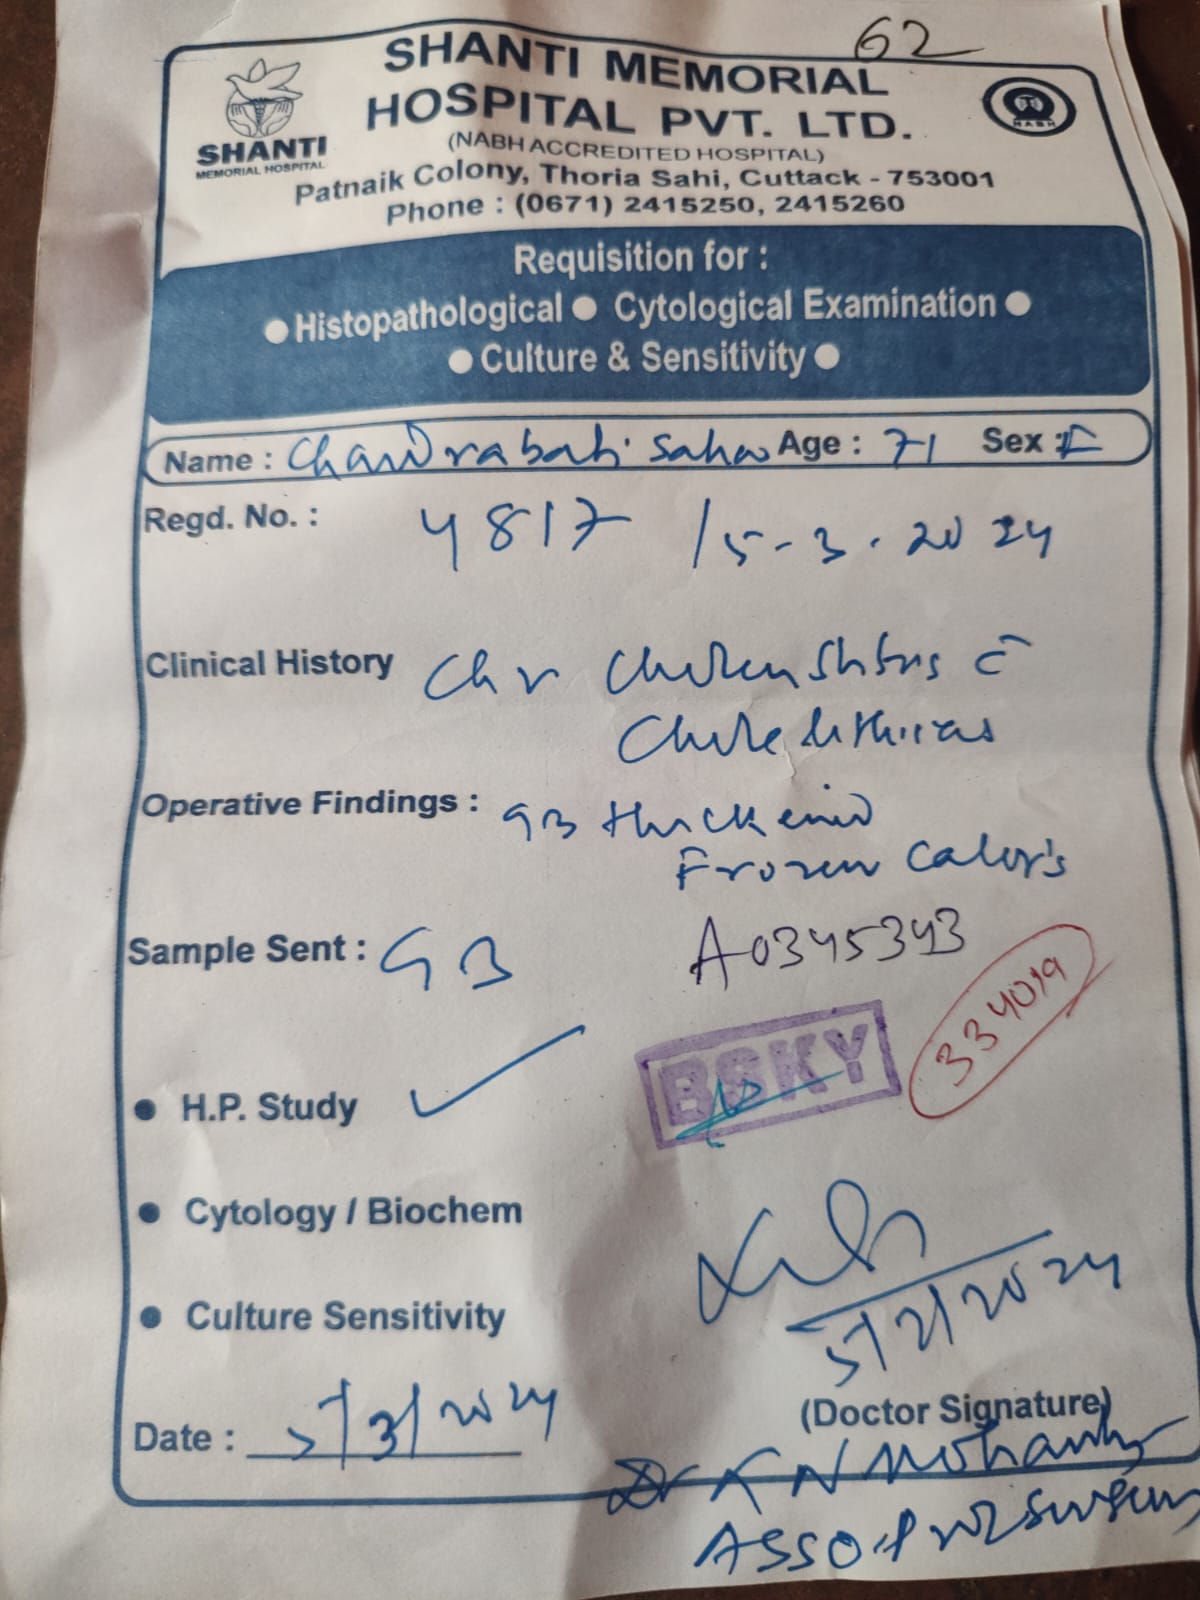 62
SHANTI MEMORIAL
HOSPITAL PVT. LTD.
(NABH ACCREDITED HOSPITAL)
SHANTI
MEMORIAL HOSPITAL
NABH
Patnaik Colony, Thoria Sahi, Cuttack - 753001
Phone : (0671) 2415250, 2415260
Requisition for :
● Histopathological ● Cytological Examination ●
● Culture & Sensitivity ●
Name : Chandrabati Sahoo Age : 71 Sex : F
Regd. No. : 4817 / 5-3-2024
Clinical History Chr
Operative Findings : GB thickened
Frozen Calot's
Sample Sent : GB
A0345343
334019
BSKY
● H.P. Study ✓
● Cytology / Biochem
● Culture Sensitivity
Date : 5/3/2024
(Doctor Signature)
Dr K N Mohanty